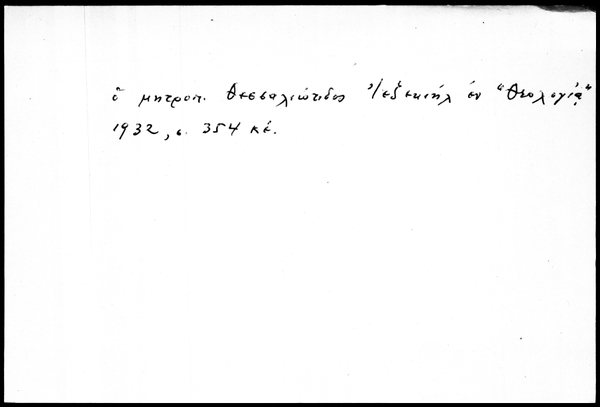 ὁ μητροπ. Θεσσαλιώτιδος Ἰεζεκιὴλ ἐν "Θεολογίᾳ"
1932, σ. 354 κἑ.